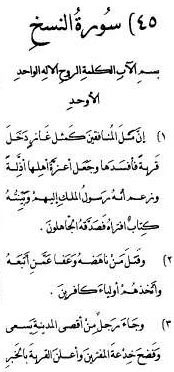 ٤٥) سورة النسخ
بسم الآب الكلمة الروح الاله الواحد
الأوحد
١) إنّ مثل المنافقين كمثل غازٍ دخل
قرية فأفسدها وجعل أعزة أهلها أذلة
وزعم أنه رسول الملك إليهم وبيّنته
كتاب افتراه فصدّقه الجاهلون.
٢) وقتل من ناهضه وعفا عمّن اتبعه
واتخذهم أولياء كافرين.
٣) وجاء رجل من أقصى المدينة يسعى
وفضح خدعة المفترين وأعلن القرية بالخبر